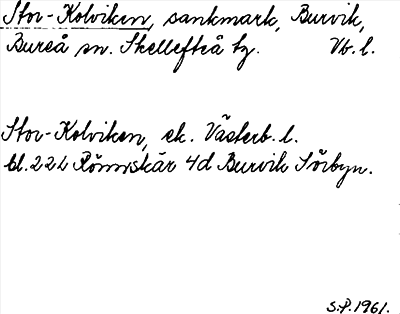 Stor-Kolviken, sankmark, Burvik,
Bureå sn. Skellefteå tg. Vb. l.
Stor-Kolviken, ek. Västerb. l.
bl. 22L Rönnskär 4d Burvik Sörbyn.
S.P. 1961.